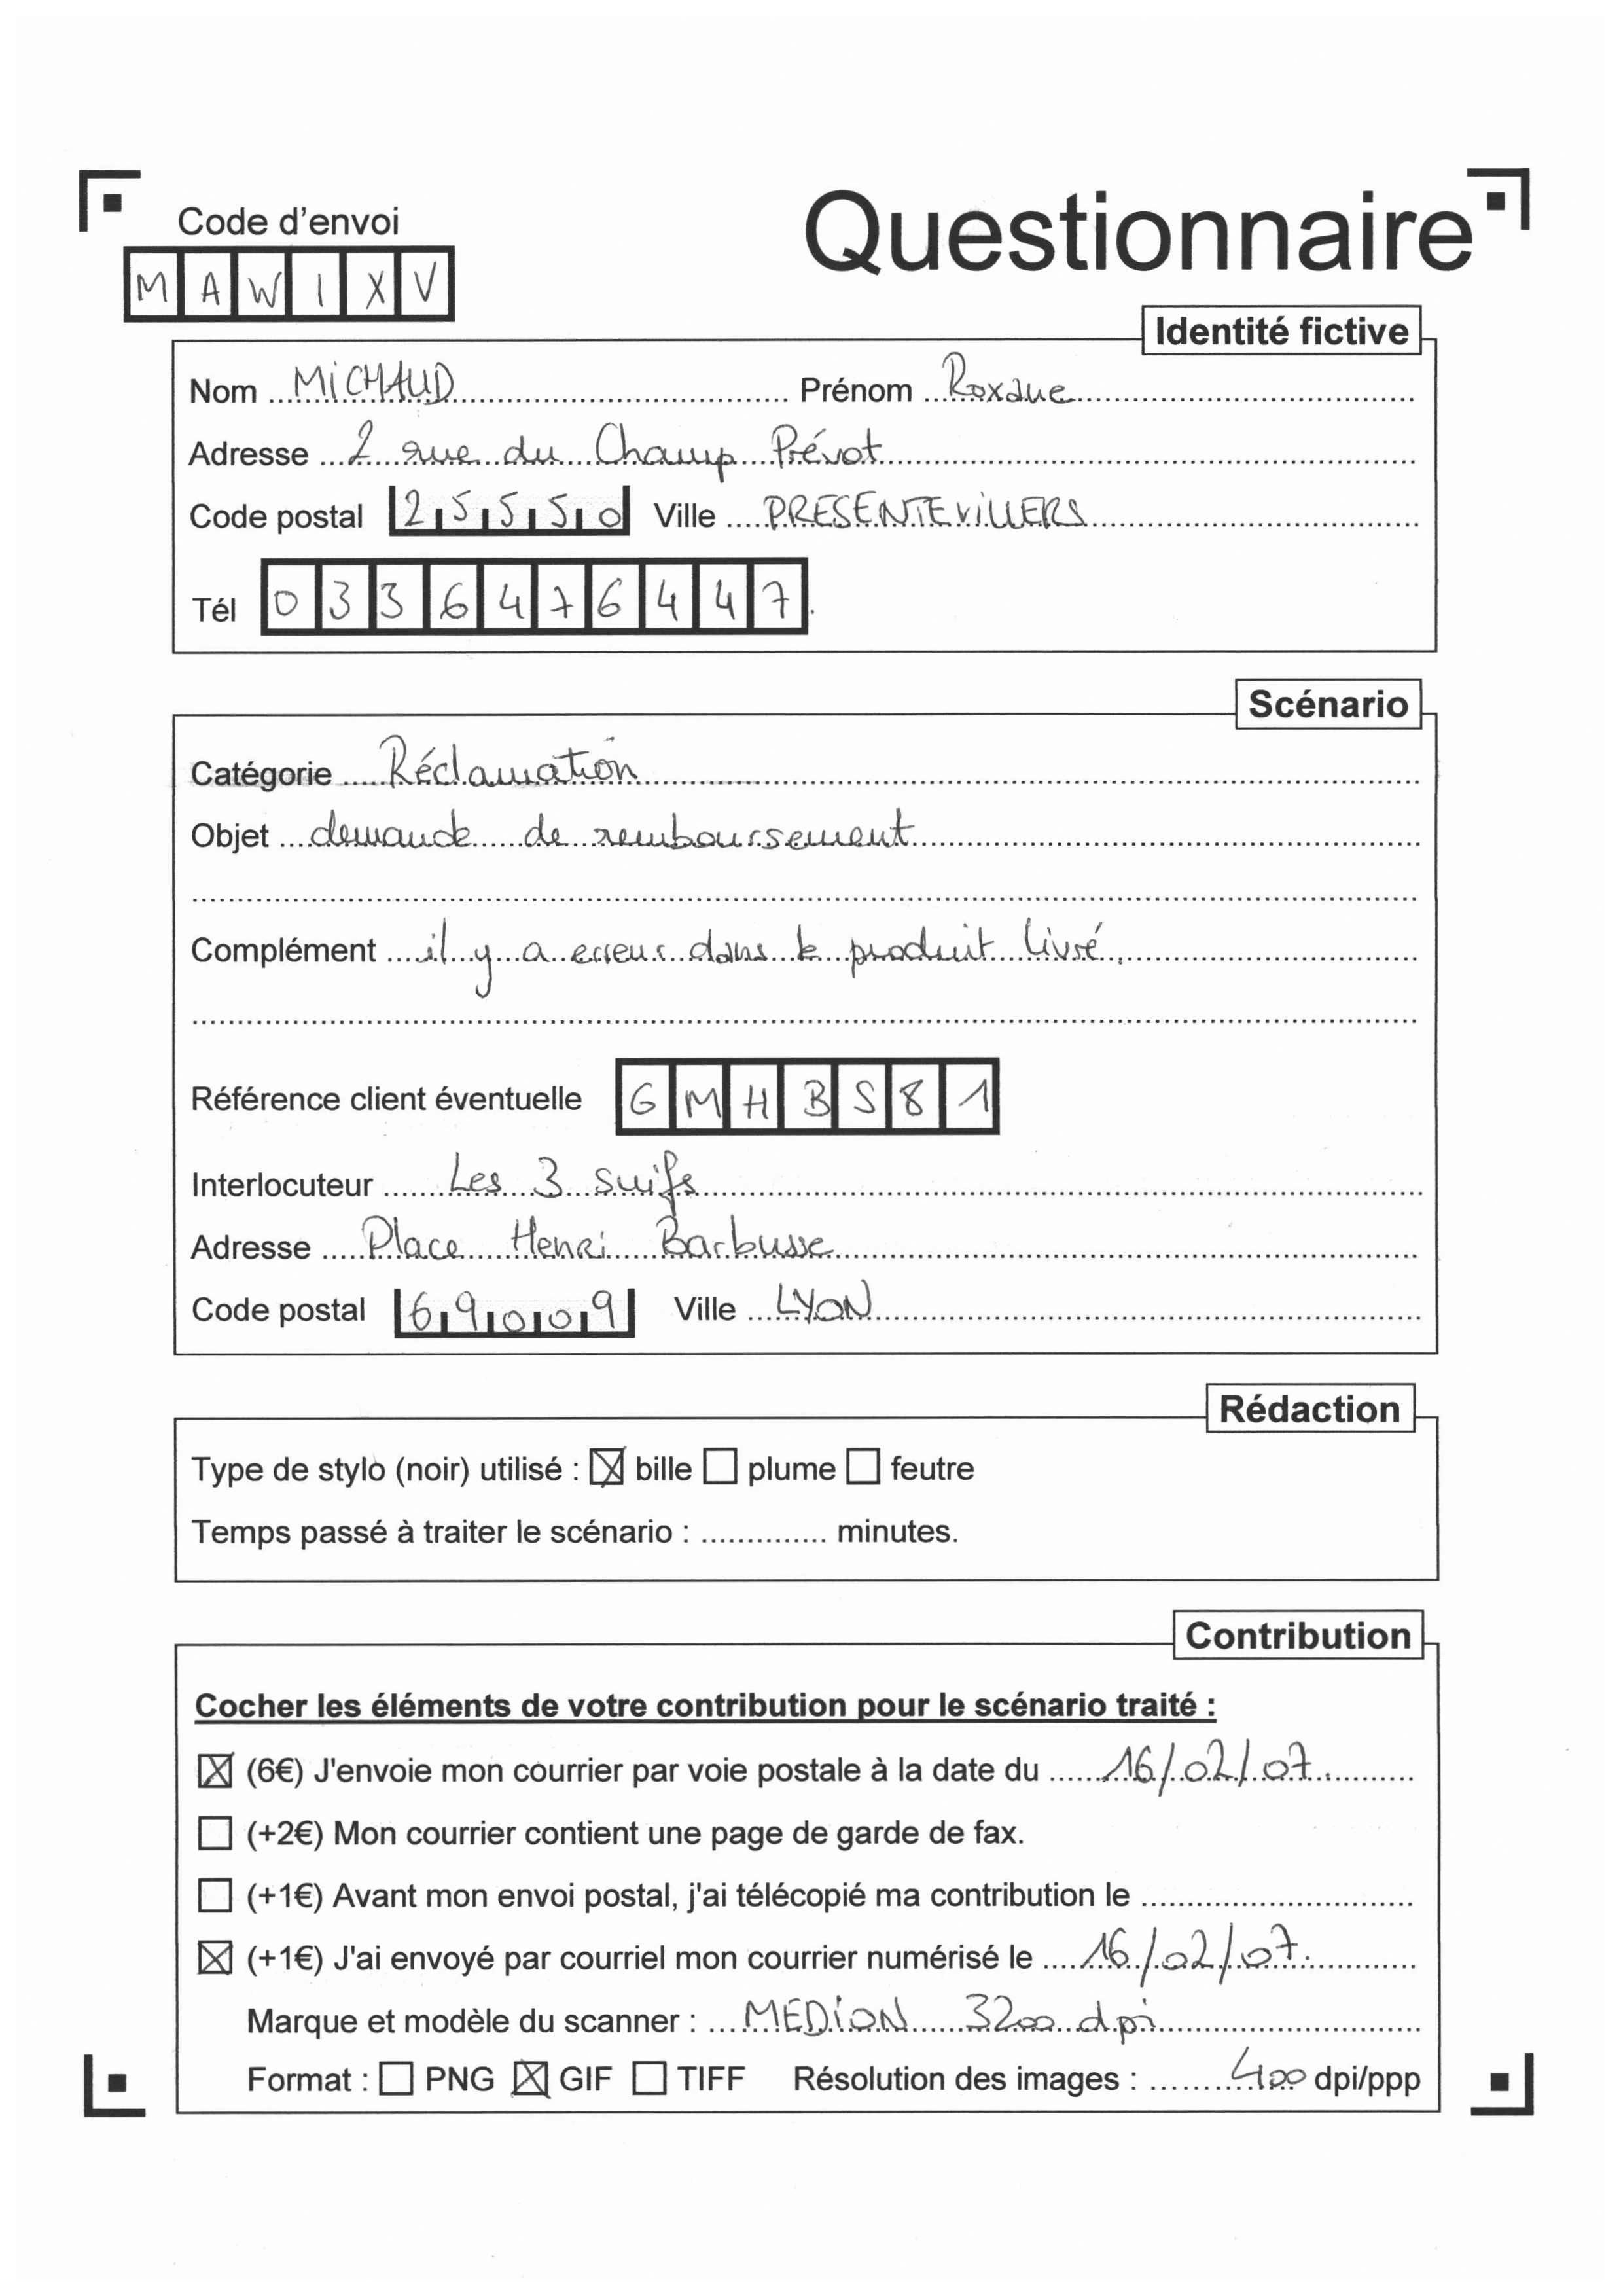 Questionnaire
Code d'envoi
MAWIXV
Identité fictive
Nom MICHAUD Prénom Roxane
Adresse 2 rue du Champ Prévot
Code postal 25550 Ville PRESENTEVILLERS
Tél 0336476447
Scénario
Catégorie Réclamation
Objet demande de remboursement
Complément il y a erreur dans le produit livré.
Référence client éventuelle GMHBS81
Interlocuteur Les 3 suifs
Adresse Place Henri Barbusse
Code postal 69009 Ville LYON
Rédaction
Type de stylo (noir) utilisé : ☒ bille ☐ plume ☐ feutre
Temps passé à traiter le scénario : .............. minutes.
Contribution
Cocher les éléments de votre contribution pour le scénario traité :
☒ (6€) J'envoie mon courrier par voie postale à la date du 16/02/07.
☐ (+2€) Mon courrier contient une page de garde de fax.
☐ (+1€) Avant mon envoi postal, j'ai télécopié ma contribution le
☒ (+1€) J'ai envoyé par courriel mon courrier numérisé le 16/02/07.
Marque et modèle du scanner : MEDION 3200 dpi
Format : ☐ PNG ☒ GIF ☐ TIFF Résolution des images : 400 dpi/ppp